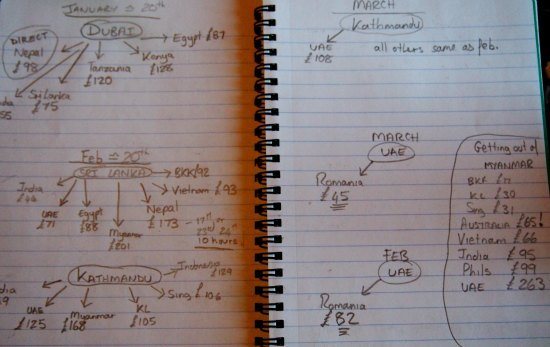 JANUARY = 20th
DUBAI
DIRECT
Nepal
£98
Egypt £87
Kenya
£128
Tanzania
£120
Sri Lanka
£75
Feb = 20th
SRI LANKA
BKK/92
Vietnam £93
India
UAE
£71
Egypt
£88
Myanmar
£201
Nepal
£173 - 17th
or
10 hours
KATHMANDU
Indonesia
£129
Sing £106
KL
£105
Myanmar
£168
UAE
£125
MARCH
Kathmandu
UAE
£108
all others same as feb.
MARCH
UAE
Romania
£45
FEB
UAE
Romania
£82
Getting out of
MYANMAR
BKK
KL £30
Sing £31
AUSTRALIA £65!
Vietnam £66
India £95
Phils £99
UAE £263